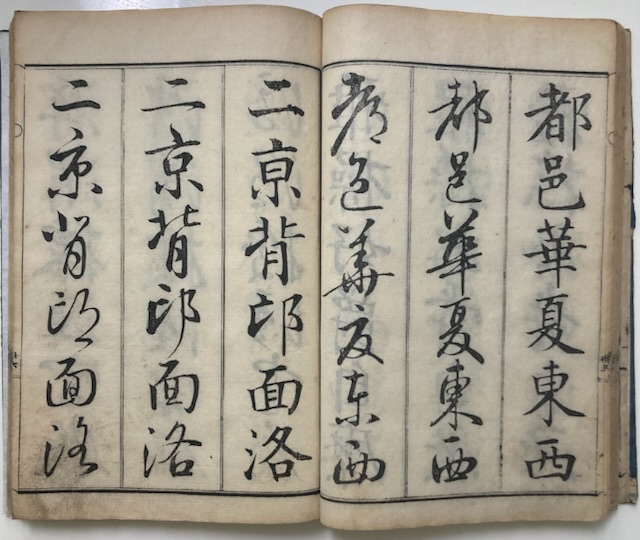 都邑華夏東西
都邑華夏東西
都邑華夏東西
二亰背邙面洛
二京背邙面洛
二京背邙面洛